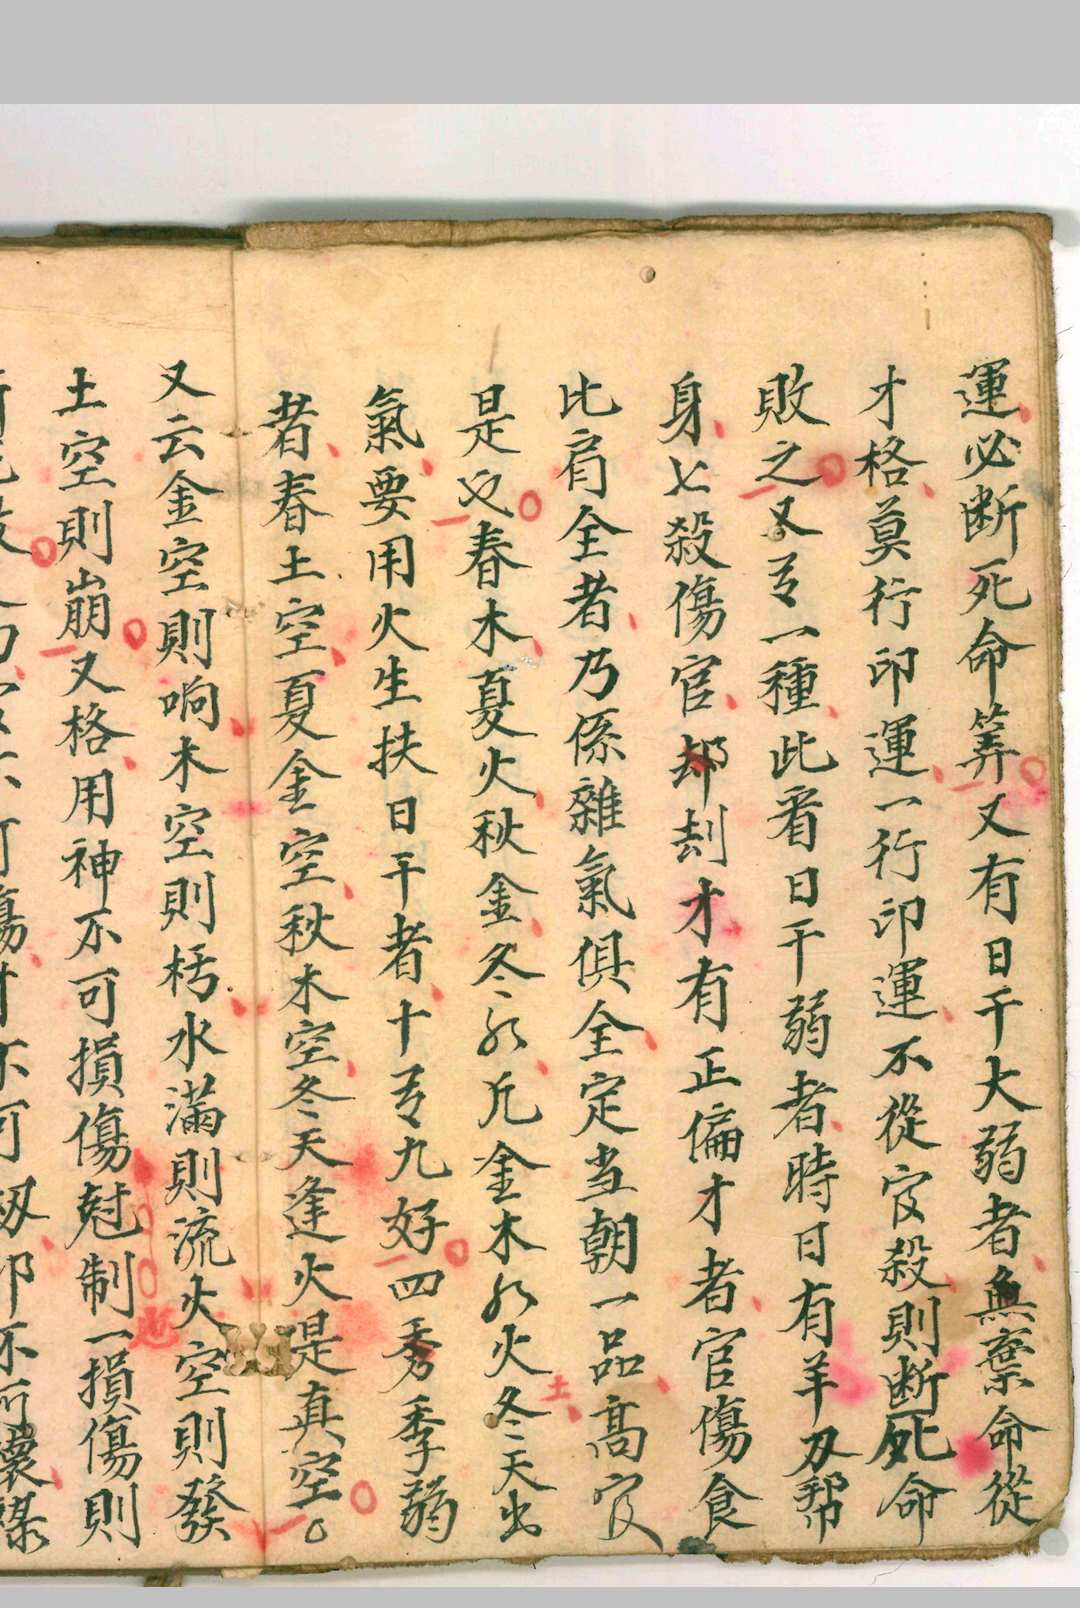 運必断死命筭又有日千大弱者無棄命從
才格莫行印運一行印運不從官殺則断死命
敗之又一種此看日干弱者時日有羊刃帮
身七殺傷官却刦才有正偏才者官傷食
比肩全者乃係雜氣俱全定当朝一品高官
是也春木夏火秋金冬水凡金木水火土冬天出
氣要用火生扶日干者十九好四季弱
者春土空夏金空秋木空冬天逢火是真空
又云金空則响木空則朽水滿則流火空則發
土空則崩又格用神不可損傷尅制一損傷則